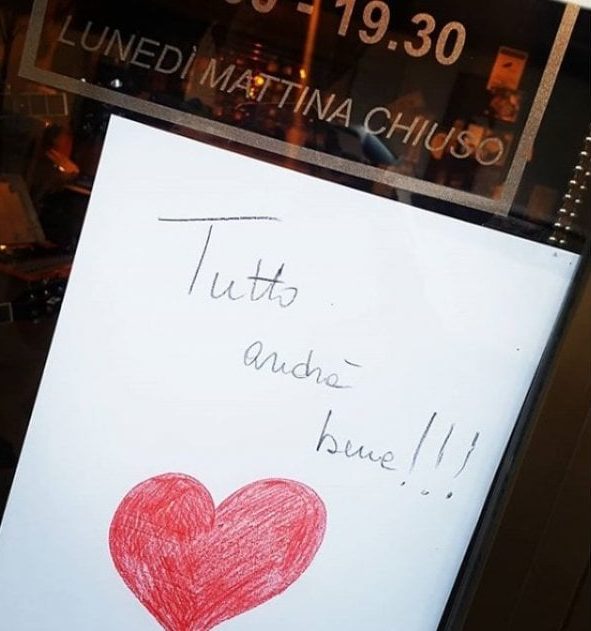 - 19.30
LUNEDÌ MATTINA CHIUSO
Tutto
andrà
bene!!!